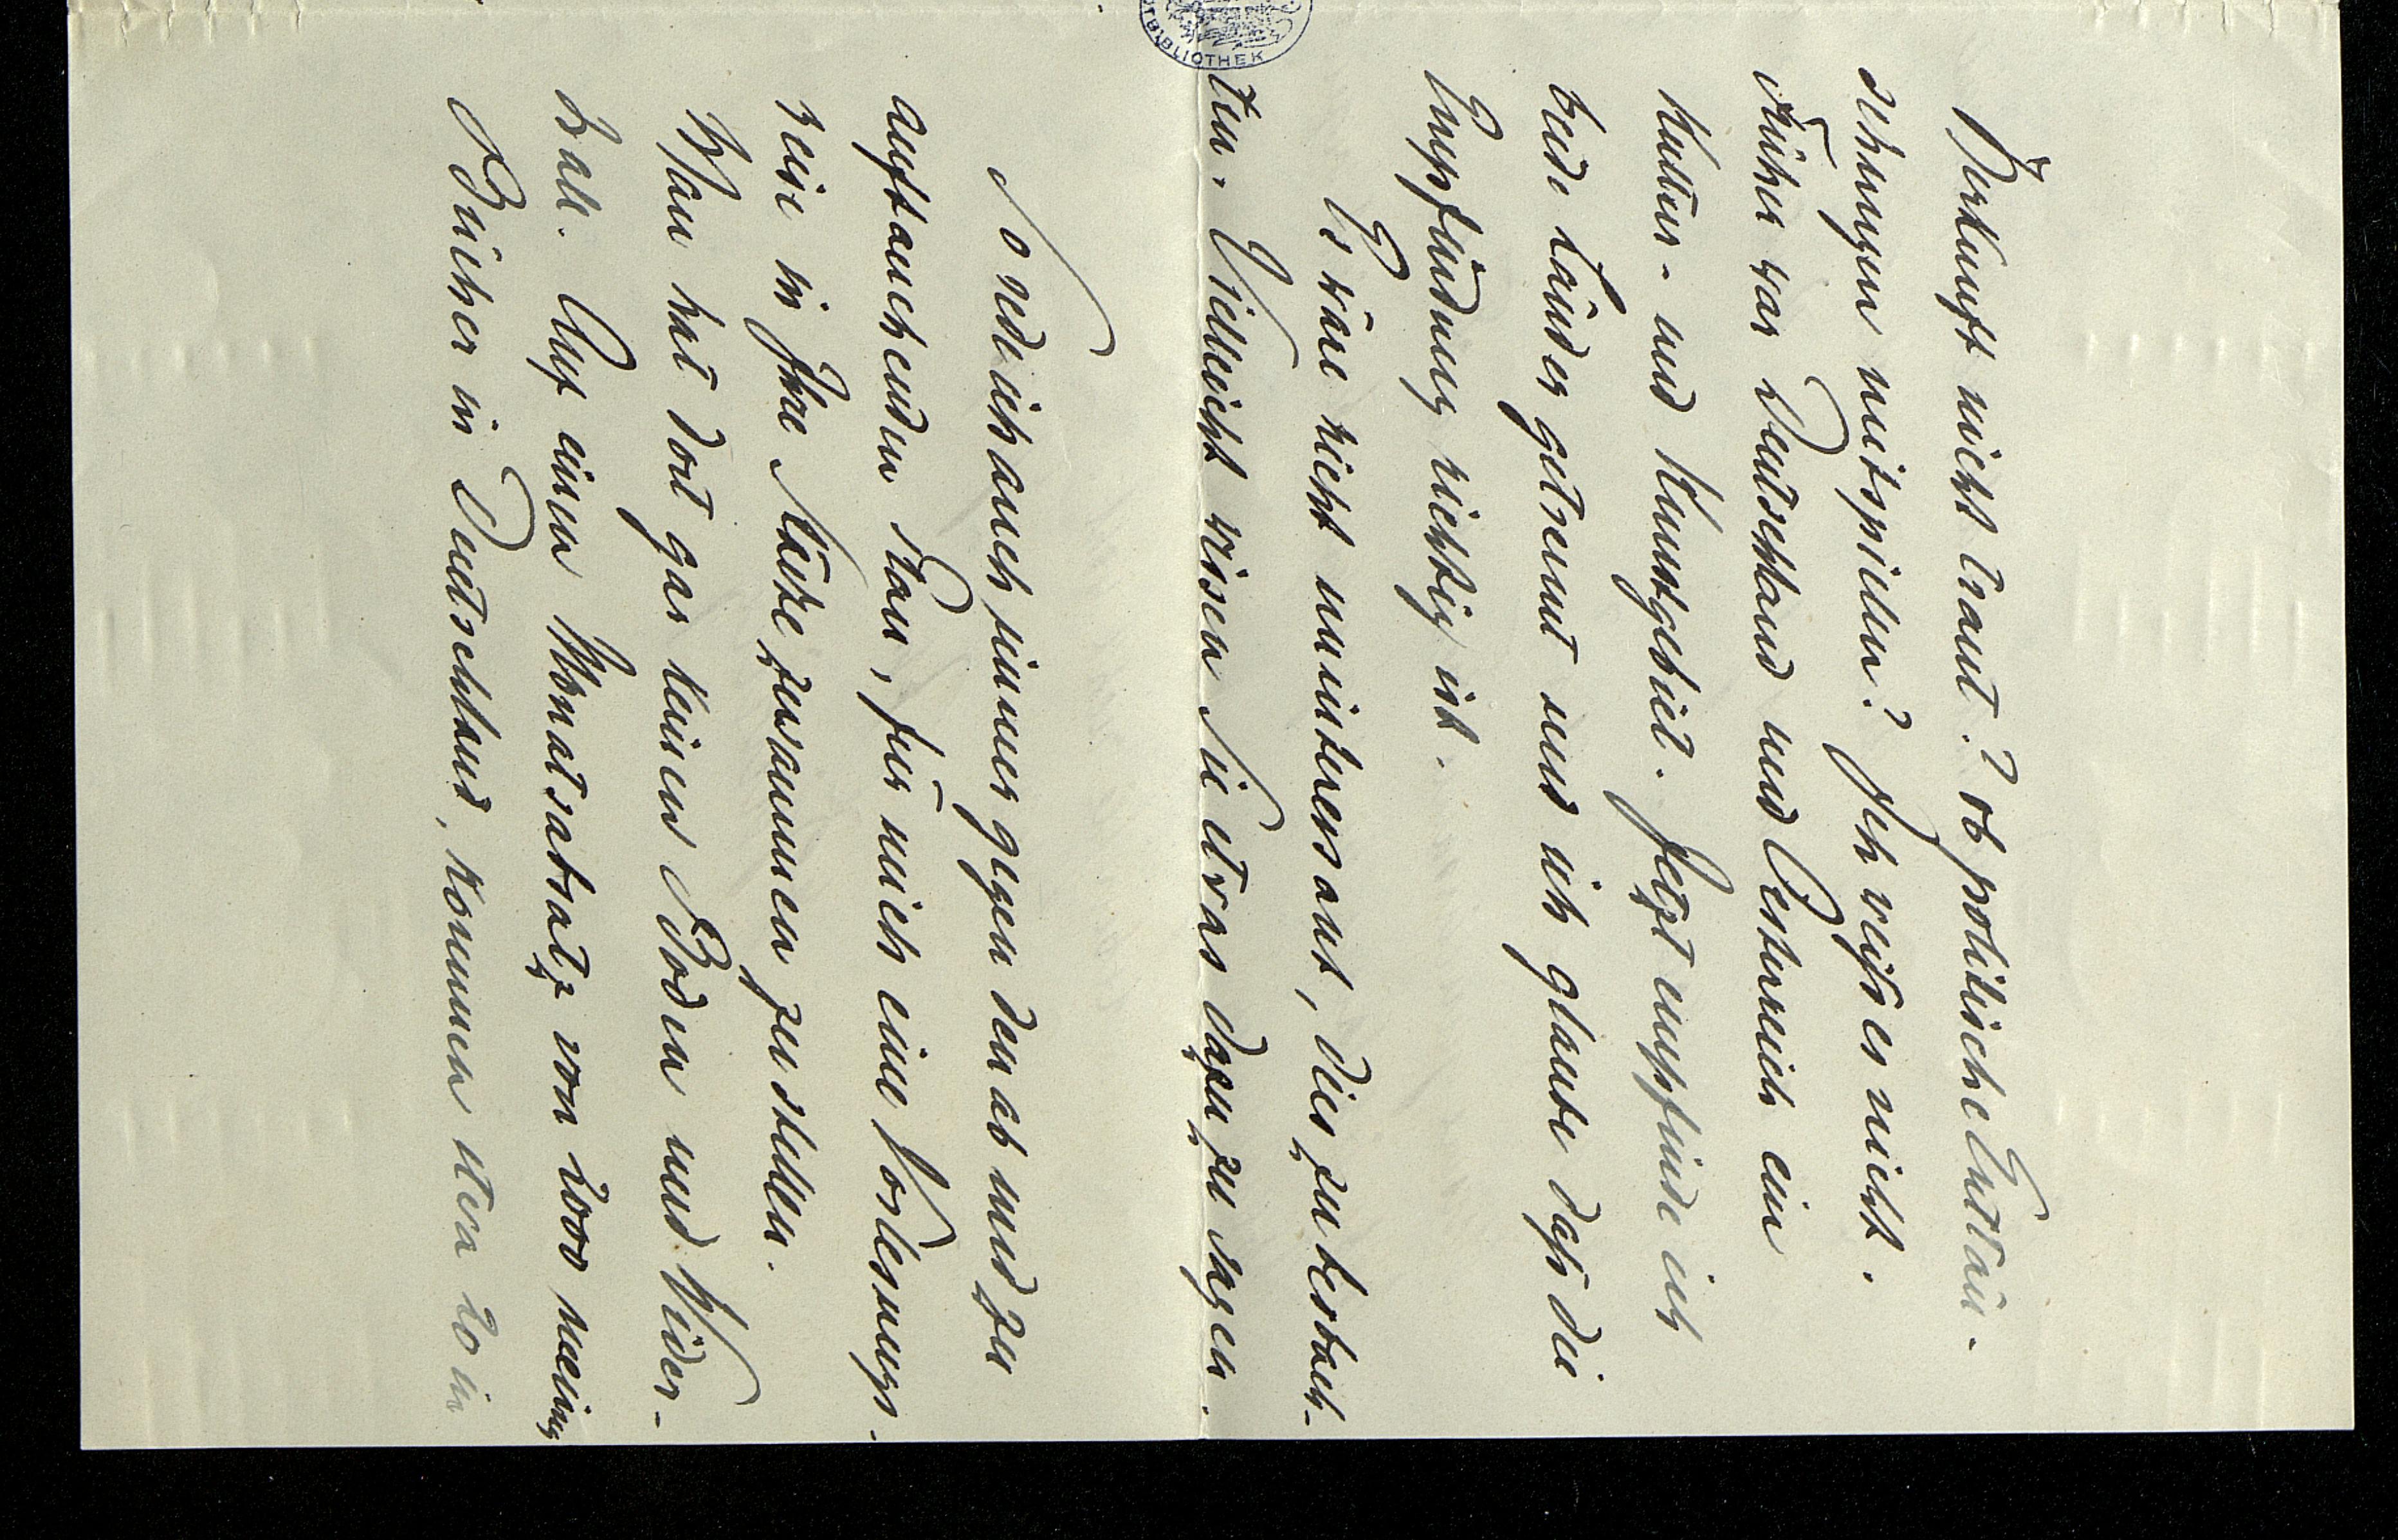 Herkunft nicht traut? ob politische Enttäu-
schungen mitspielen? Ich weiss es nicht.
Früher war Deutschland und Oesterreich ein
Kultur- und Kunstgebiet. Jetzt empfinde ich
beide Länder getrennt und ich glaube dass die
Empfindung richtig ist.
Es wäre nicht uninteressant, dies zu beobach-
ten. Vielleicht wissen Sie etwas dazu zu sagen.
So rede ich auch immer gegen den ab und zu
auftauchenden Plan, für mich eine Vorlesungs-
reise in Ihre Städte zusammen zu stellen.
Man hat dort gar keinen Boden und Wider-
hall. Auf einen Monatsabsatz von 2000 meiner
Bücher in Deutschland, kommen etwa 20 in
BIBLIOTHEK